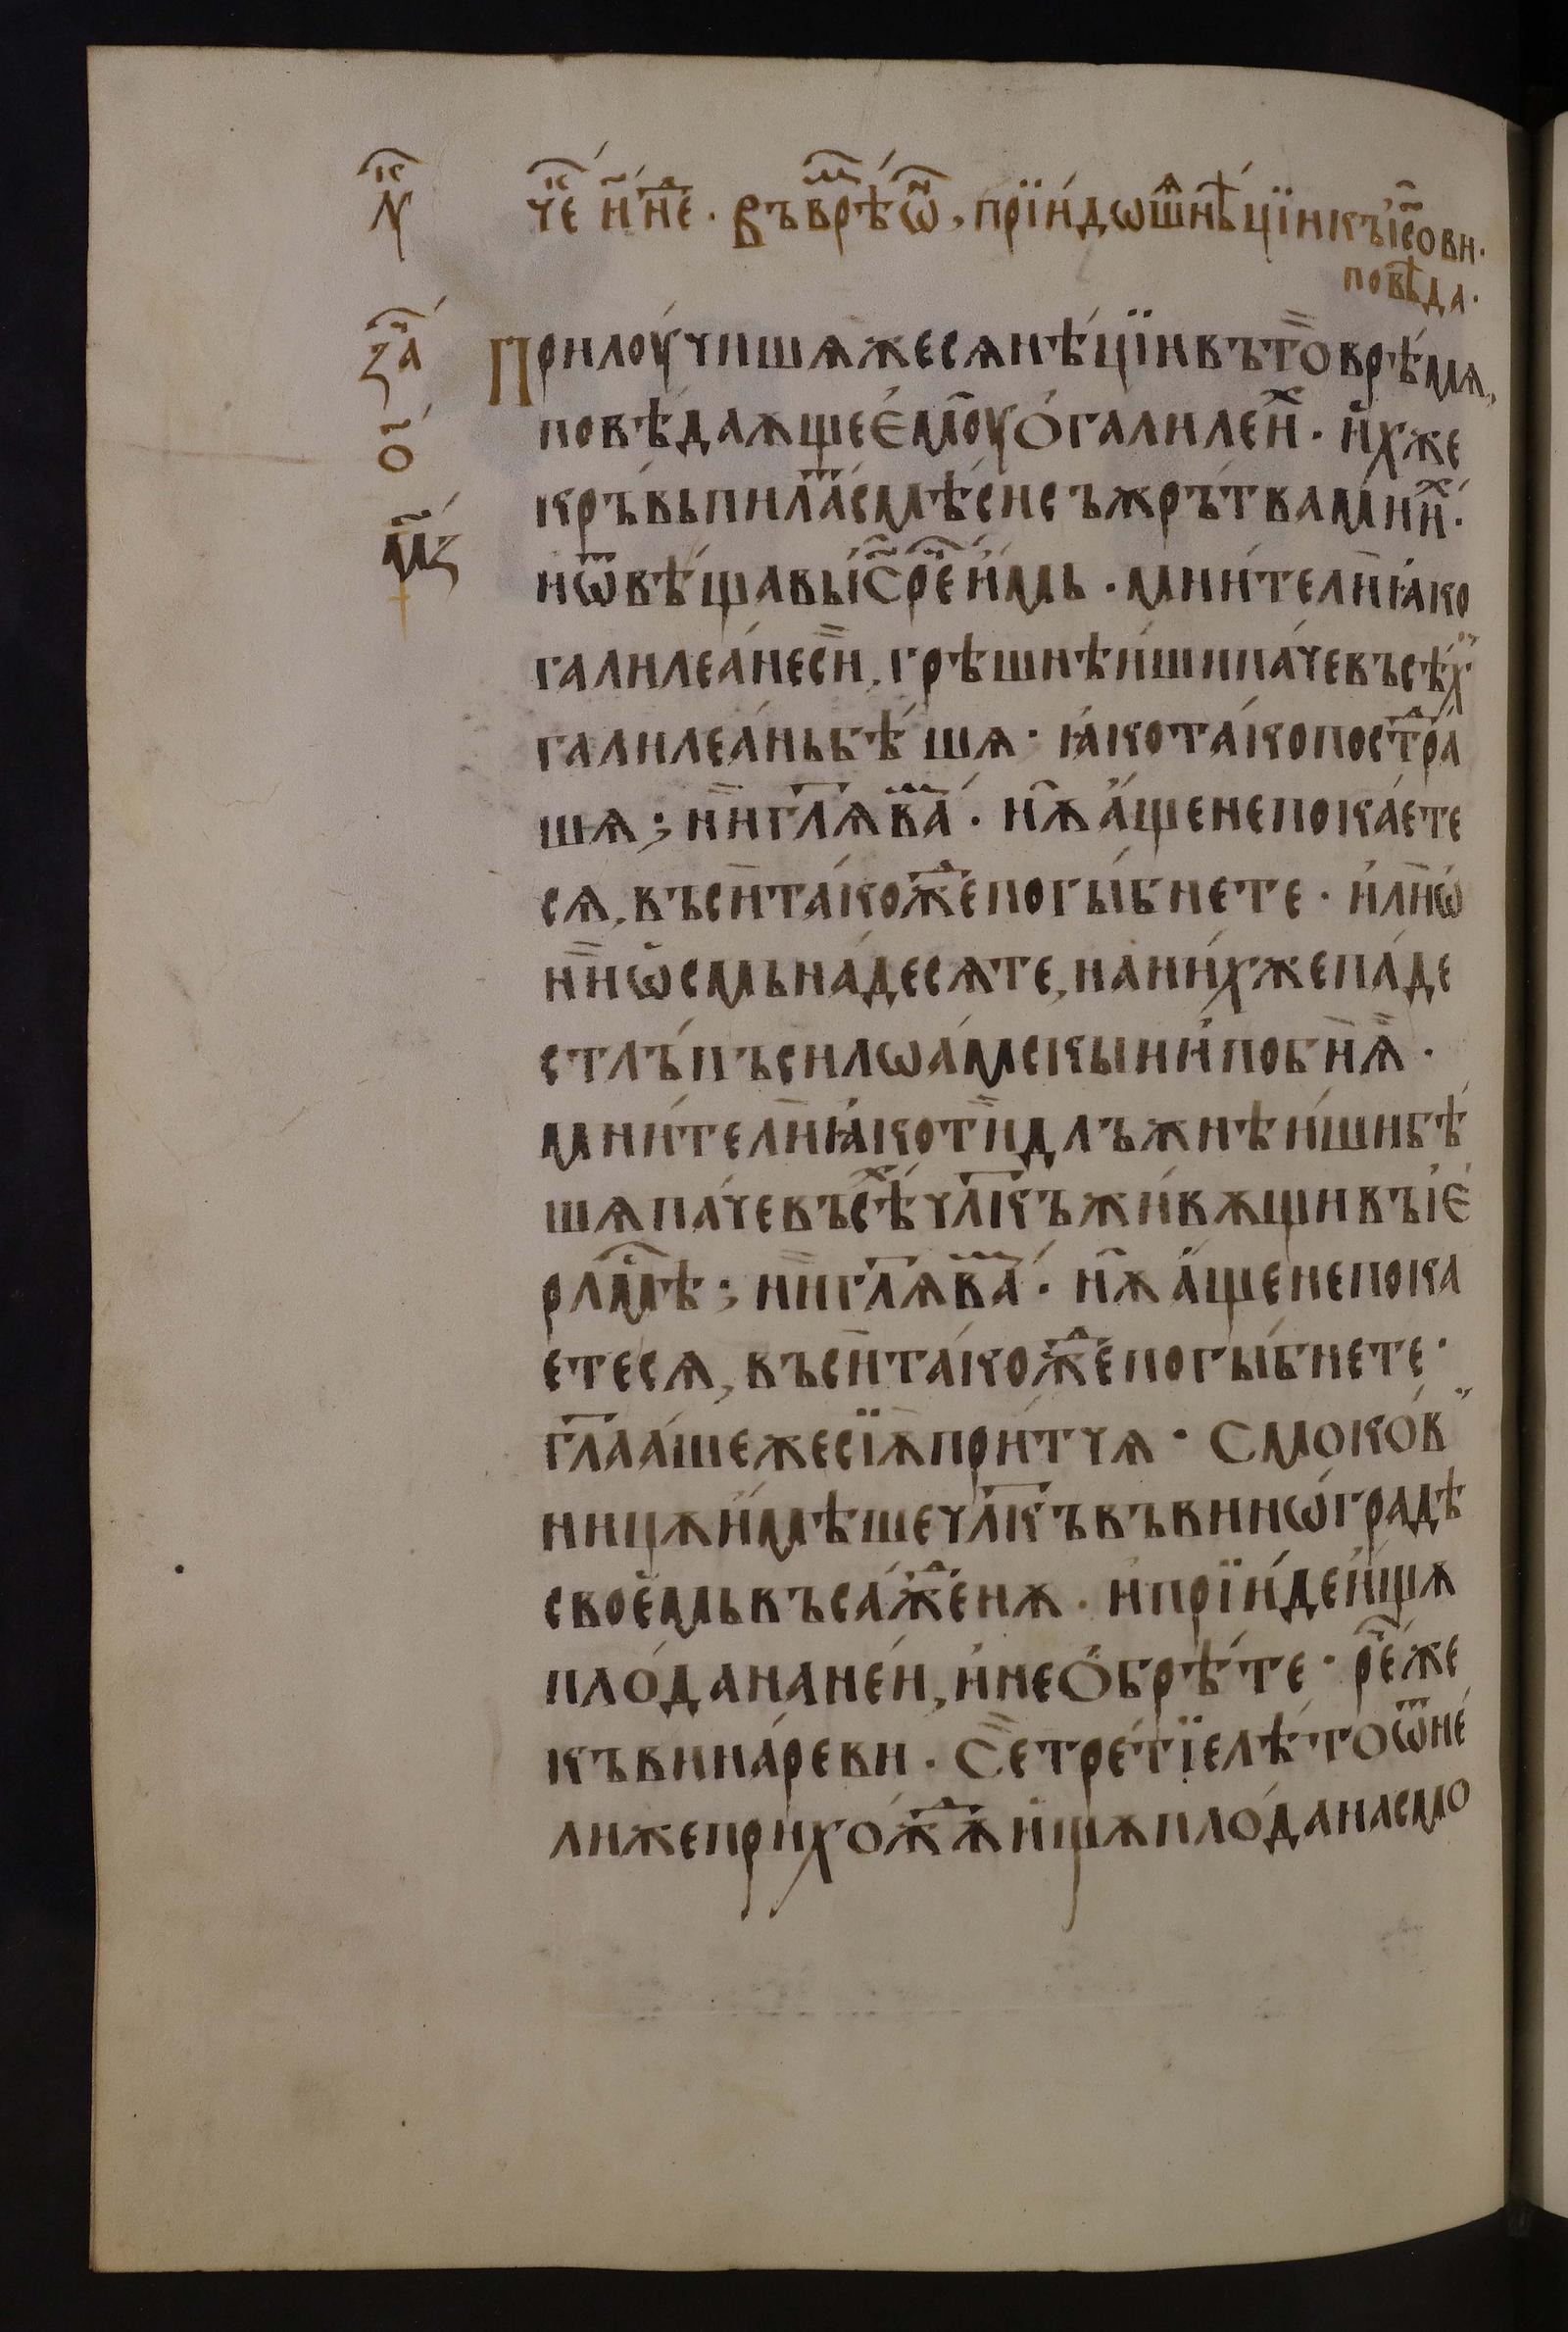 чⷭ҇е н҃ нⷣе. Въ врѣⷨ ѡ҆́н, прїидѡшⷶ нѣцїи къ іс҃ови.
повѣда.
Прилоучишѧжесѧнѣ́цїивътóврѣ́мѧ,
повѣ́даѫщеє҆моуѻ҆галилеиⷯ. и҆́хже
кръ́вьпилаⷮсмѣсисъжрътвамииⷯ.
иѿвѣ́щавыі҆с҃рⷱ҇еи҆́мь. мни́телиꙗ҆́ко
галилеа́неси, грѣшнѣи́шипа́чевъсѣ́хⸯ
галилеа́ньбѣ́шѧ. ꙗ҆́котáкопостⷣра
шѧ; нигл҃ѧваⷨ. нѫа҆́щенепокáете
сѧ, въситáкожⷣепогы́бнете. и҆лиѡ҆
ниѡ҆смьнáдесѧте, нани́хжепáде
стлъ́пъсилѡáмскыии҆побиѧ.
мни́телиꙗ҆́котидлъжнѣи́шибѣ́
шѧпáчевъсѣⷯчл҃къжи́вѫщивъіє҆
рл҃мѣ; нигл҃ѧваⷨ. нѫа҆́щенепока
етесѧ, въситáкожⷣепогы́бнете.
гл҃аáшежесїѫпри́тчѧ. Смокóвⸯ
ницѫи҆мѣшечл҃къвъвинѡ́градѣ
своє́мьвъсáжⷣенѫ. и҆прїи́деи҆щѧ
плóдананéи, и҆неѻ҆брѣ́те. рⷱ҇е́же
къвинáреви. Сетрéтїелѣ́тоѿне́
лижеприхóжⷣѫи҆щѫплóданасмо
ІСⷩ҇
за҃ⷱ
о҃
мз҃